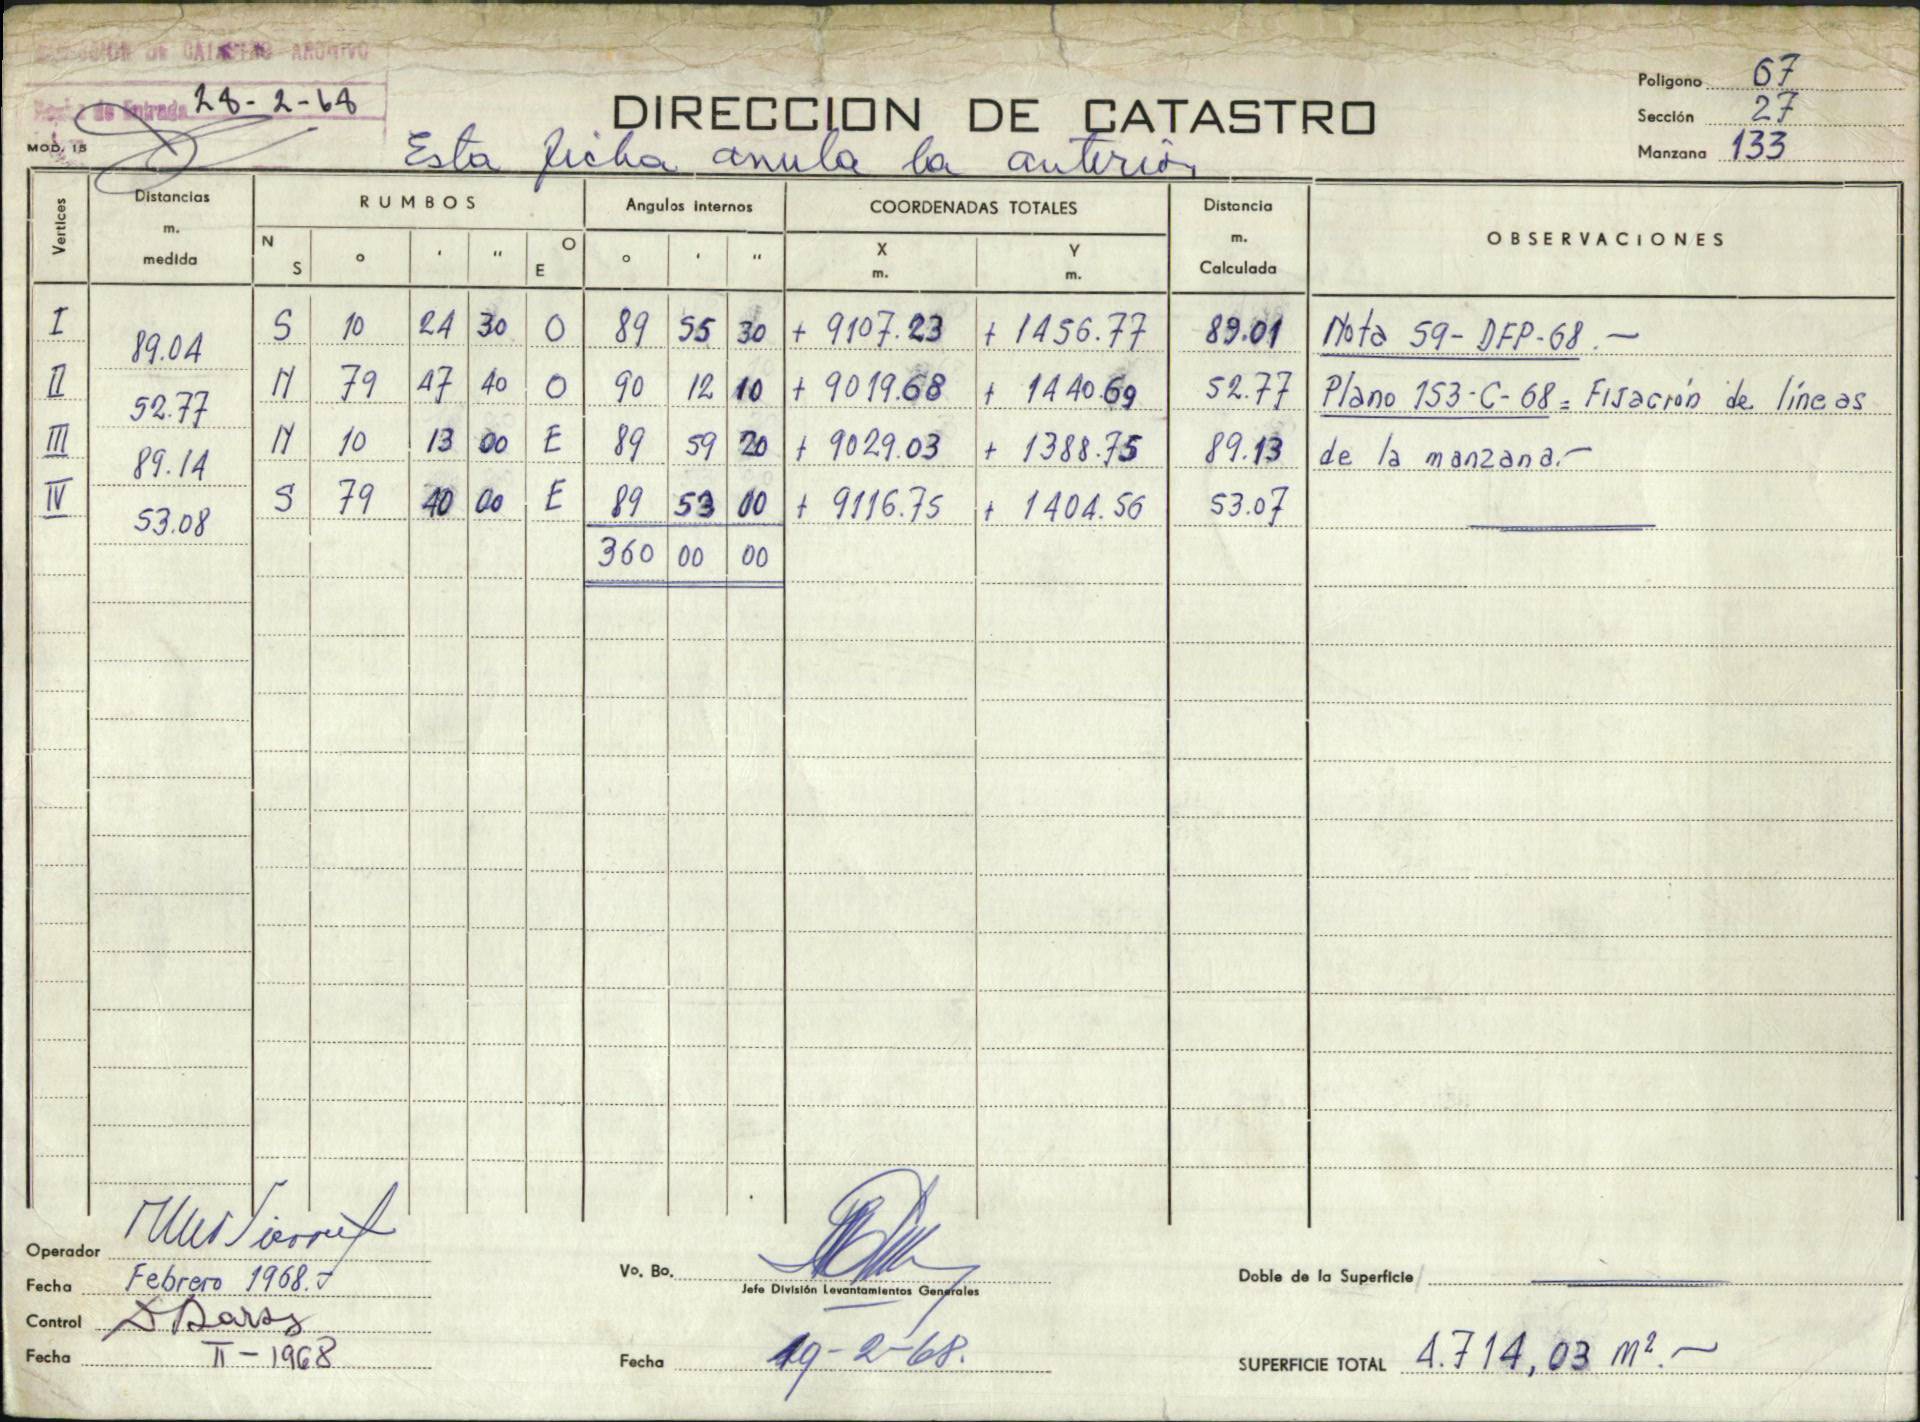 DIRECCION DE CATASTRO ARCHIVO
Fecha de Entrada 28-2-68
MOD. 15
DIRECCION DE CATASTRO
Esta ficha anula la anterior
Poligono 67
Sección 27
Manzana 133
Vertices Distancias m. medida RUMBOS Angulos internos COORDENADAS TOTALES Distancia m. Calculada OBSERVACIONES
N S o ' " O E o ' " X m. Y m.
I 89.04 S 10 24 30 O 89 55 30 + 9107.23 + 1456.77 89.01 Nota 59-DFP-68.—
II 52.77 N 79 47 40 O 90 12 10 + 9019.68 + 1440.69 52.77 Plano 153-C-68= Fijación de líneas
III 89.14 N 10 13 00 E 89 59 20 + 9029.03 + 1388.75 89.13 de la manzana.—
IV 53.08 S 79 40 00 E 89 53 00 + 9116.75 + 1404.56 53.07
360 00 00
Operador
Fecha Febrero 1968.
Control
Fecha II-1968
Vo. Bo.
Jefe División Levantamientos Generales
Fecha 19-2-68.
Doble de la Superficie
SUPERFICIE TOTAL 4.714,03 m².—